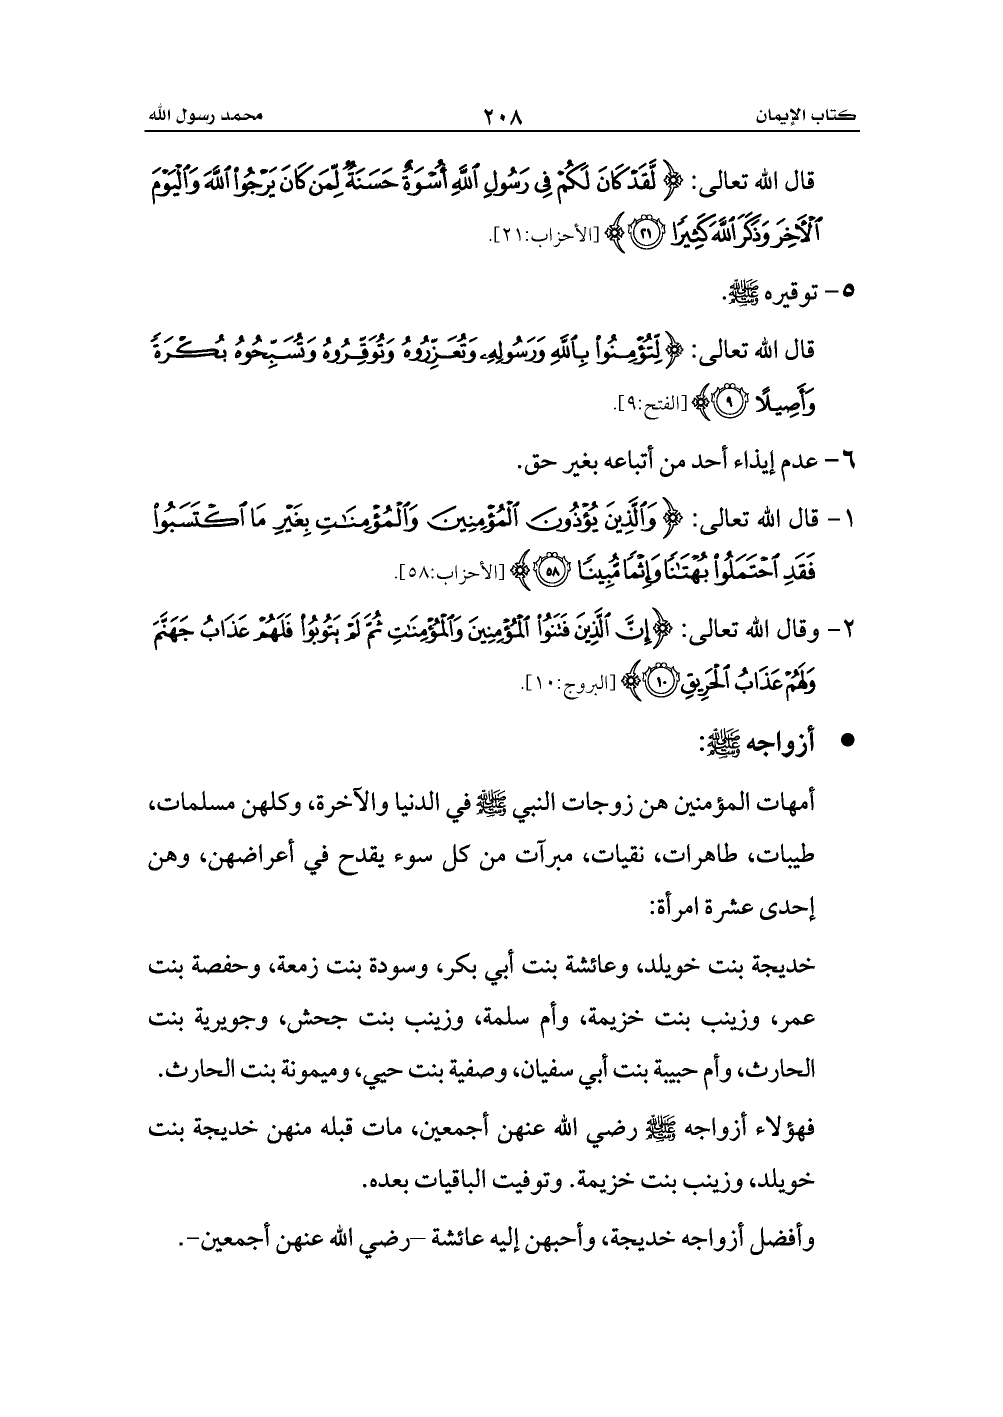 كتاب الإيمان ٢٠٨ محمد رسول الله
قال الله تعالى: ﴿ لَّقَدْ كَانَ لَكُمْ فِي رَسُولِ ٱللَّهِ أُسْوَةٌ حَسَنَةٌ لِّمَن كَانَ يَرْجُوا۟ ٱللَّهَ وَٱلْيَوْمَ
ٱلْآخِرَ وَذَكَرَ ٱللَّهَ كَثِيرًا ٢١ ﴾ [الأحزاب:٢١].
٥- توقيره ﷺ.
قال الله تعالى: ﴿ لِّتُؤْمِنُوا۟ بِٱللَّهِ وَرَسُولِهِۦ وَتُعَزِّرُوهُ وَتُوَقِّرُوهُ وَتُسَبِّحُوهُ بُكْرَةً
وَأَصِيلًا ٩ ﴾ [الفتح:٩].
٦- عدم إيذاء أحد من أتباعه بغير حق.
١- قال الله تعالى: ﴿ وَٱلَّذِينَ يُؤْذُونَ ٱلْمُؤْمِنِينَ وَٱلْمُؤْمِنَٰتِ بِغَيْرِ مَا ٱكْتَسَبُوا۟
فَقَدِ ٱحْتَمَلُوا۟ بُهْتَٰنًا وَإِثْمًا مُّبِينًا ٥٨ ﴾ [الأحزاب:٥٨].
٢- وقال الله تعالى: ﴿ إِنَّ ٱلَّذِينَ فَتَنُوا۟ ٱلْمُؤْمِنِينَ وَٱلْمُؤْمِنَٰتِ ثُمَّ لَمْ يَتُوبُوا۟ فَلَهُمْ عَذَابُ جَهَنَّمَ
وَلَهُمْ عَذَابُ ٱلْحَرِيقِ ١٠ ﴾ [البروج:١٠].
● أزواجه ﷺ:
أمهات المؤمنين هن زوجات النبي ﷺ في الدنيا والآخرة، وكلهن مسلمات،
طيبات، طاهرات، نقيات، مبرآت من كل سوء يقدح في أعراضهن، وهن
إحدى عشرة امرأة:
خديجة بنت خويلد، وعائشة بنت أبي بكر، وسودة بنت زمعة، وحفصة بنت
عمر، وزينب بنت خزيمة، وأم سلمة، وزينب بنت جحش، وجويرية بنت
الحارث، وأم حبيبة بنت أبي سفيان، وصفية بنت حيي، وميمونة بنت الحارث.
فهؤلاء أزواجه ﷺ رضي الله عنهن أجمعين، مات قبله منهن خديجة بنت
خويلد، وزينب بنت خزيمة. وتوفيت الباقيات بعده.
وأفضل أزواجه خديجة، وأحبهن إليه عائشة –رضي الله عنهن أجمعين-.